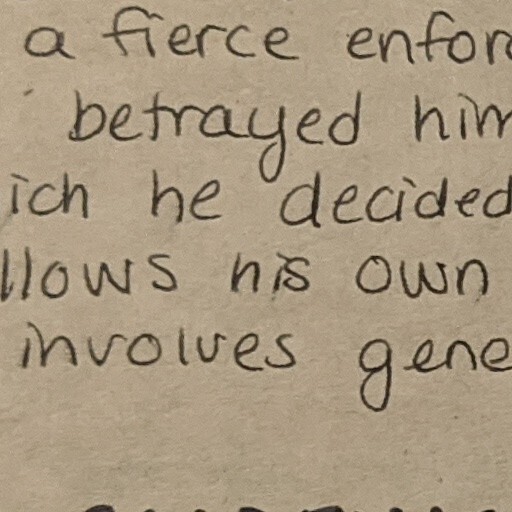 a fierce enfor
betrayed him
ich he decided
llows his own
involves gene